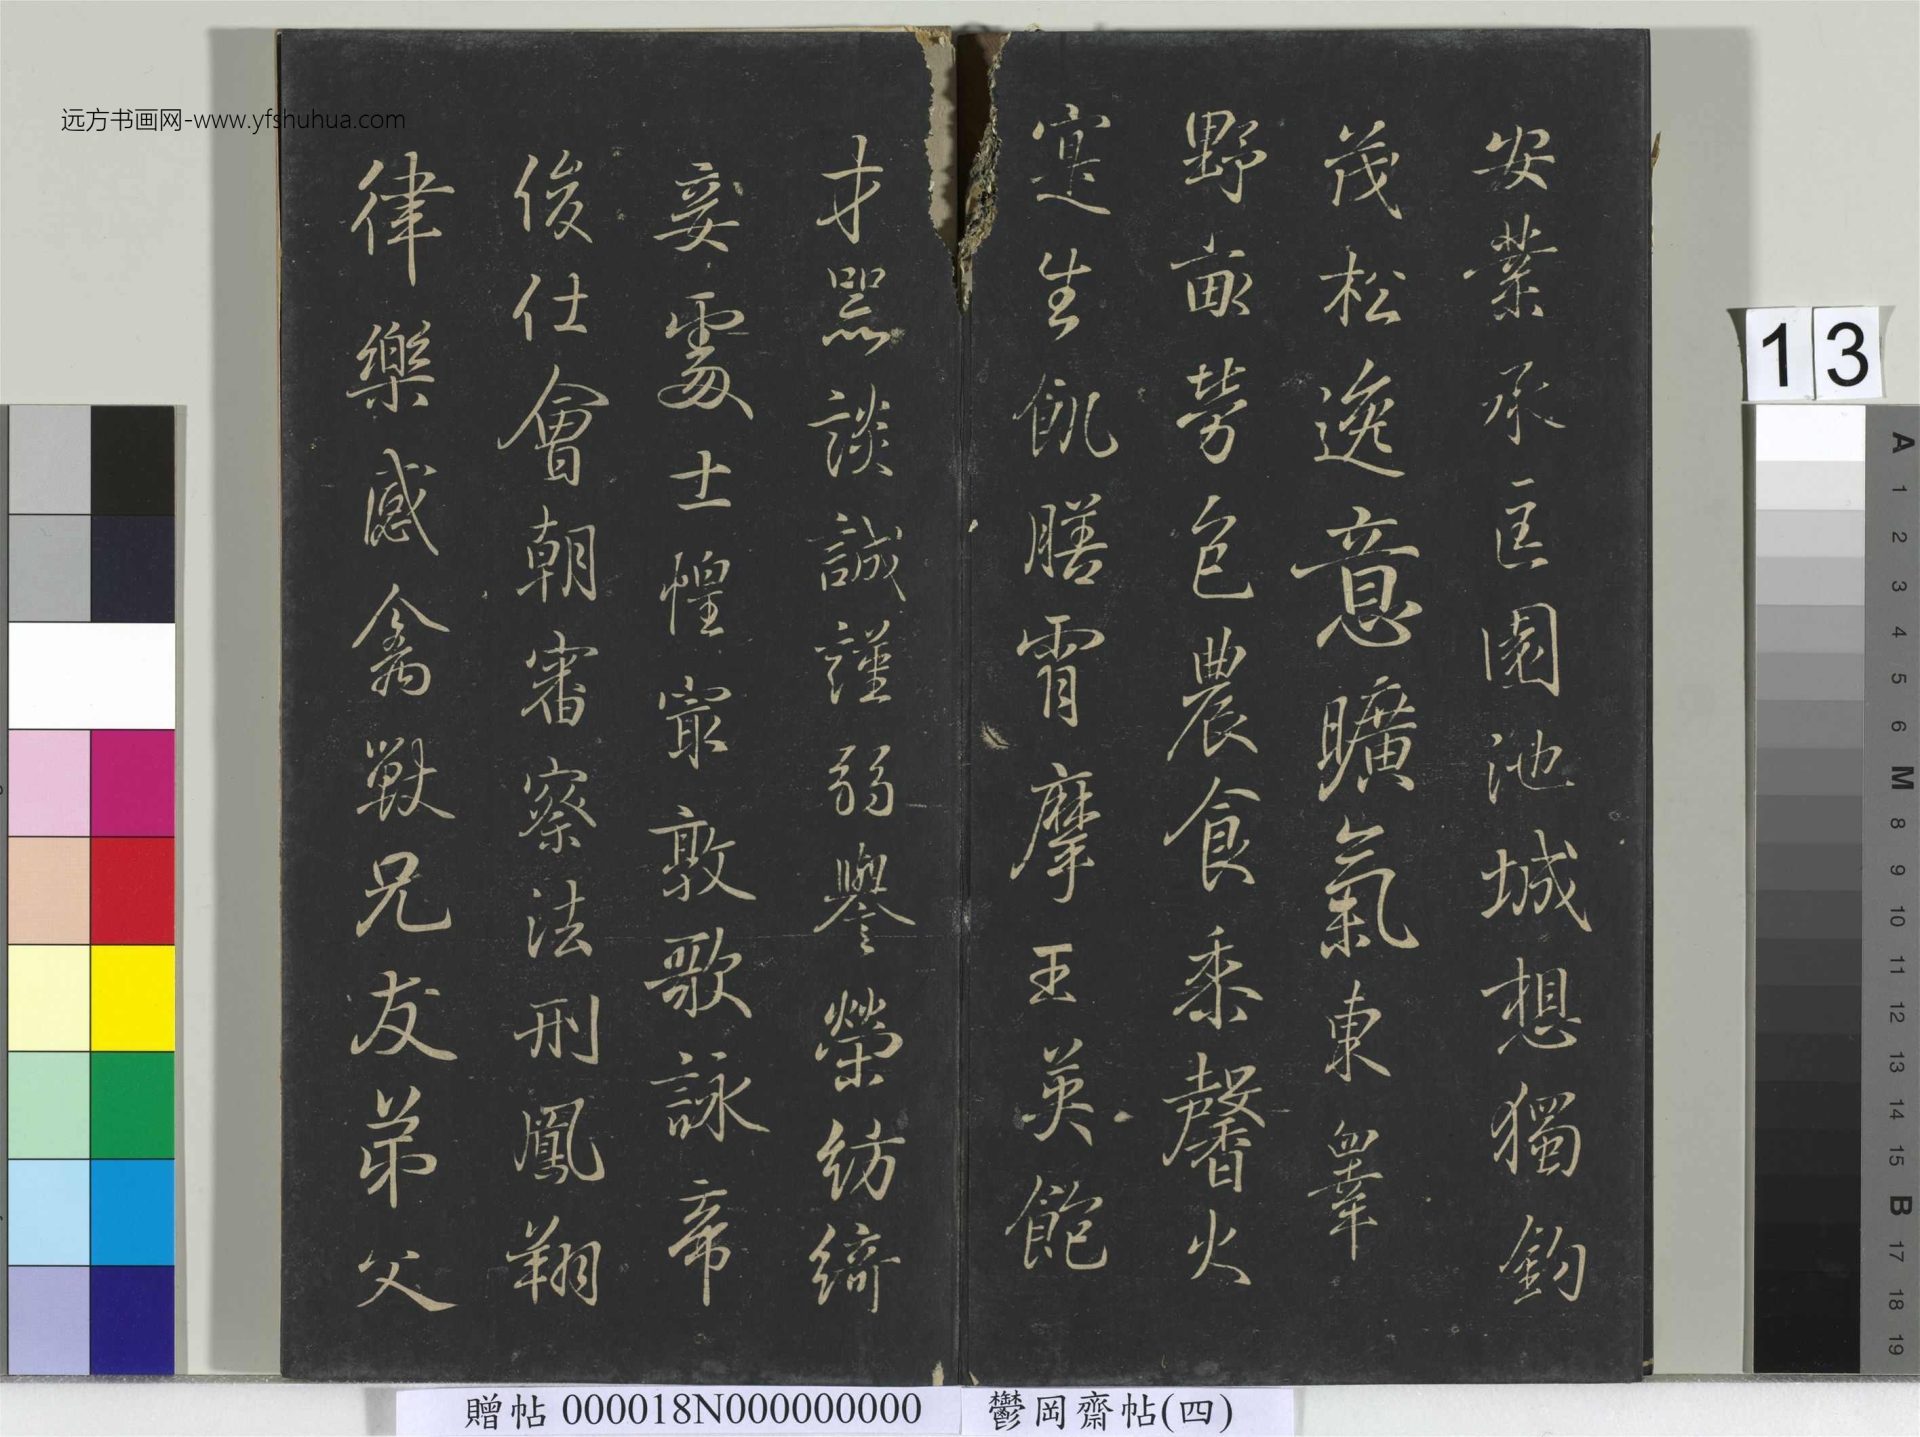 远方书画网-www.yfshuhua.com
安業承匡園池城想獨鈞
茂松逸意曠氣東睾
野畝勞包農食黍馨火
寔生飢膳霄摩王英飽
才器談誠謹弱譽榮紡綺
妾處士惶㝡敦歌詠帝
俊仕會朝審察法刑鳳翔
律樂感禽獸兄友弟父
13
A 1 2 3 4 5 6 M 8 9 10 11 12 13 14 15 B 17 18 19
贈帖 000018N000000000
鬱岡齋帖(四)